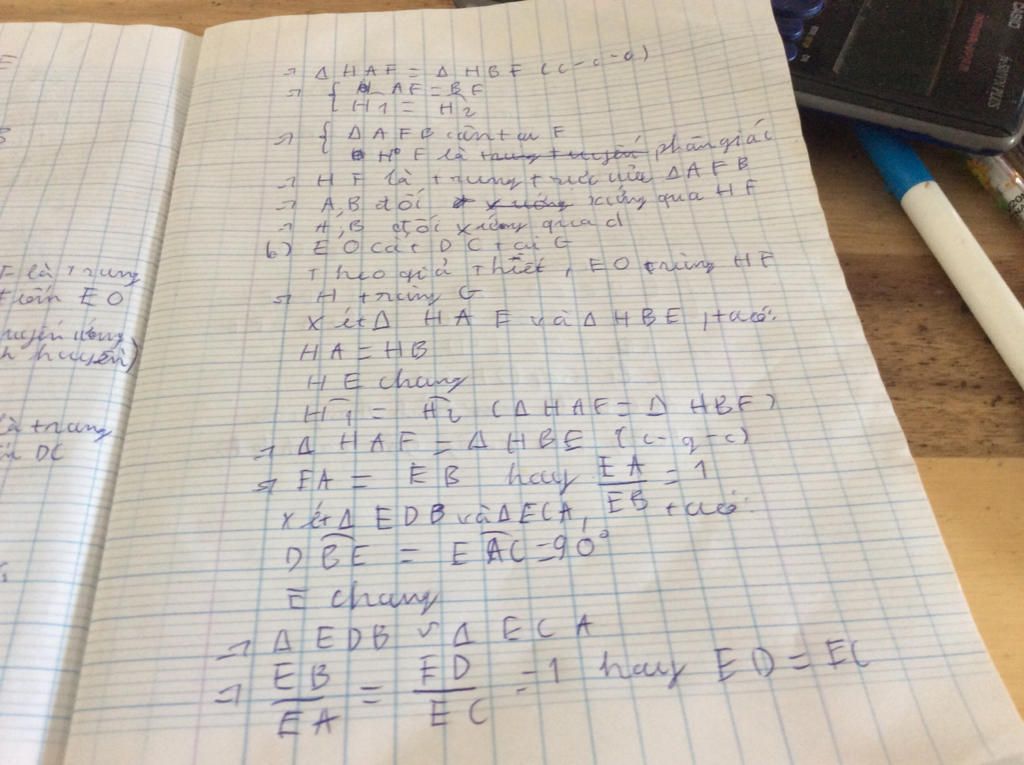 E
B
F là trung
tuến EO
huyền)
là trung
DC
→ Δ HAF = Δ HBF (c-c-c)
→ { AF = BF
H1 = H2
→ { Δ AFB cân tại F
HF là trung tuyến phân giác
→ HF là trung trực của Δ AFB
→ A, B đối xướng xứng qua HF
→ A, B đối xứng qua d
b) EO cắt DC tại G
Theo giả thiết, EO trùng HF
→ H trùng G
Xét Δ HAE và Δ HBE, ta có:
HA = HB
HE chung
H1 = H2 (Δ HAF = Δ HBF)
→ Δ HAF = Δ HBE (c-g-c)
→ EA = EB hay EA/EB = 1
Xét Δ EDB và Δ ECA, ta có
DBE = EAC = 90°
E chung
→ Δ EDB ∽ Δ ECA
→ EB/EA = ED/EC = 1 hay ED = EC
CASIO